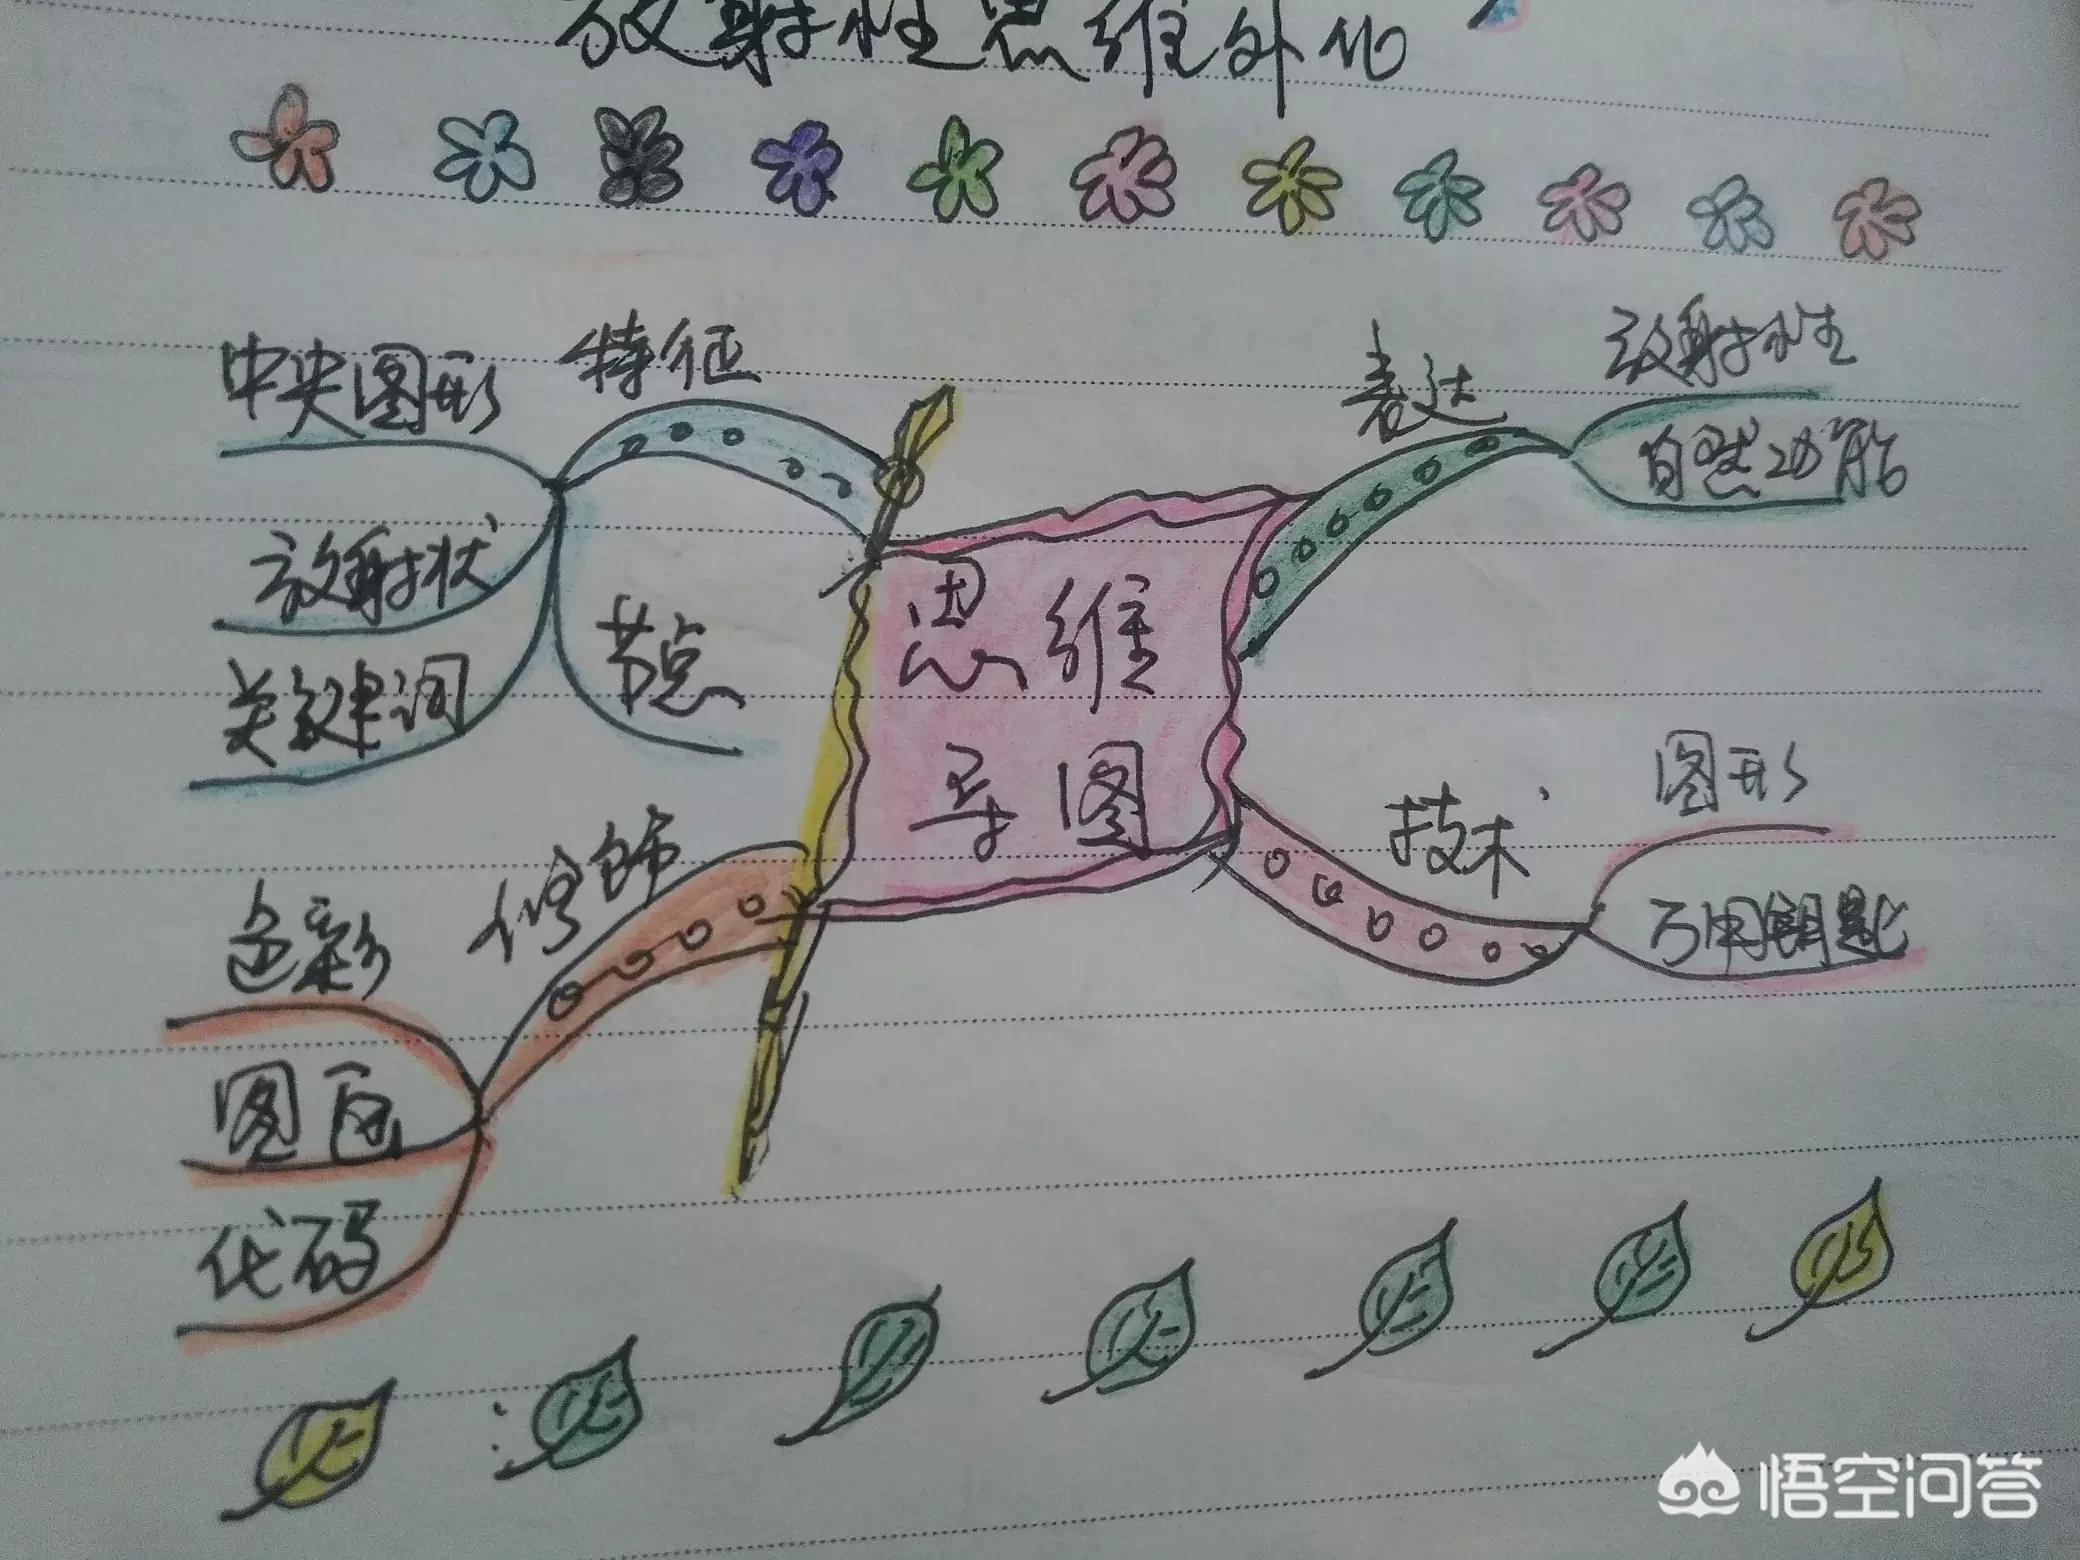 放射性思维外化
中央图形
特征
放射状
关键词
节点
思维
导图
表达
放射性
自然功能
技术
图形
万用钥匙
修饰
色彩
图画
代码
悟空问答